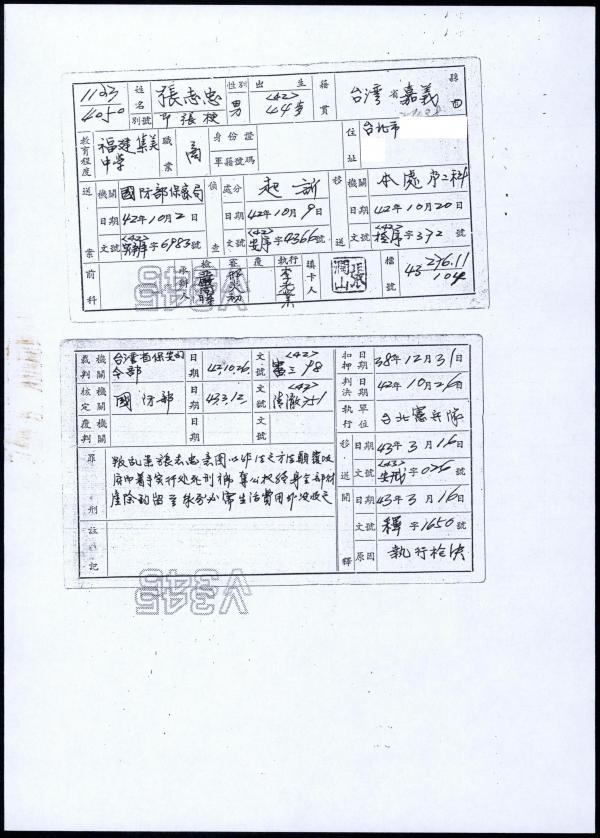 1193
4050
姓名 張志忠 性別 男 出生 <42> 44岁 籍貫 台灣省嘉義縣市
別號 張梗
教育程度 福建集美中学 職業 商 身份證 軍籍號碼 住址 台北市
送案 機關 國防部保密局 偵查 處分 起訴 移送 機關 本處第二科
日期 42年10月2日 日期 42年10月9日 日期 42年10月20日
文號 <42> 字6983號 文號 <42> 安序字4366號 文號 <42> 字392號
前科 承辦人 檢察 覆 執行 填卡人 張潤山 檔號 43 276.11 104
裁判 機關 台灣省保安司令部 日期 42.10.26. 文號 <42> 審三98 扣押日期 38年12月31日
核定 機關 國防部 日期 43.3.12. 文號 <42> 清澈 判決日期 42年10月26日
覆判 機關 日期 文號 執行單位 台北憲兵隊
罪刑 叛乱案張志忠意图以非法之方法顛覆政
府而着手实行处死刑褫奪公权终身全部财
產除酌留其家属必需生活費用外没收之
移送 日期 43年3月16日
文號 <43> 安戒字026號
開釋 日期 43年3月16日
文號 釋字1650號
原因 執行枪决
註記
V345
V345